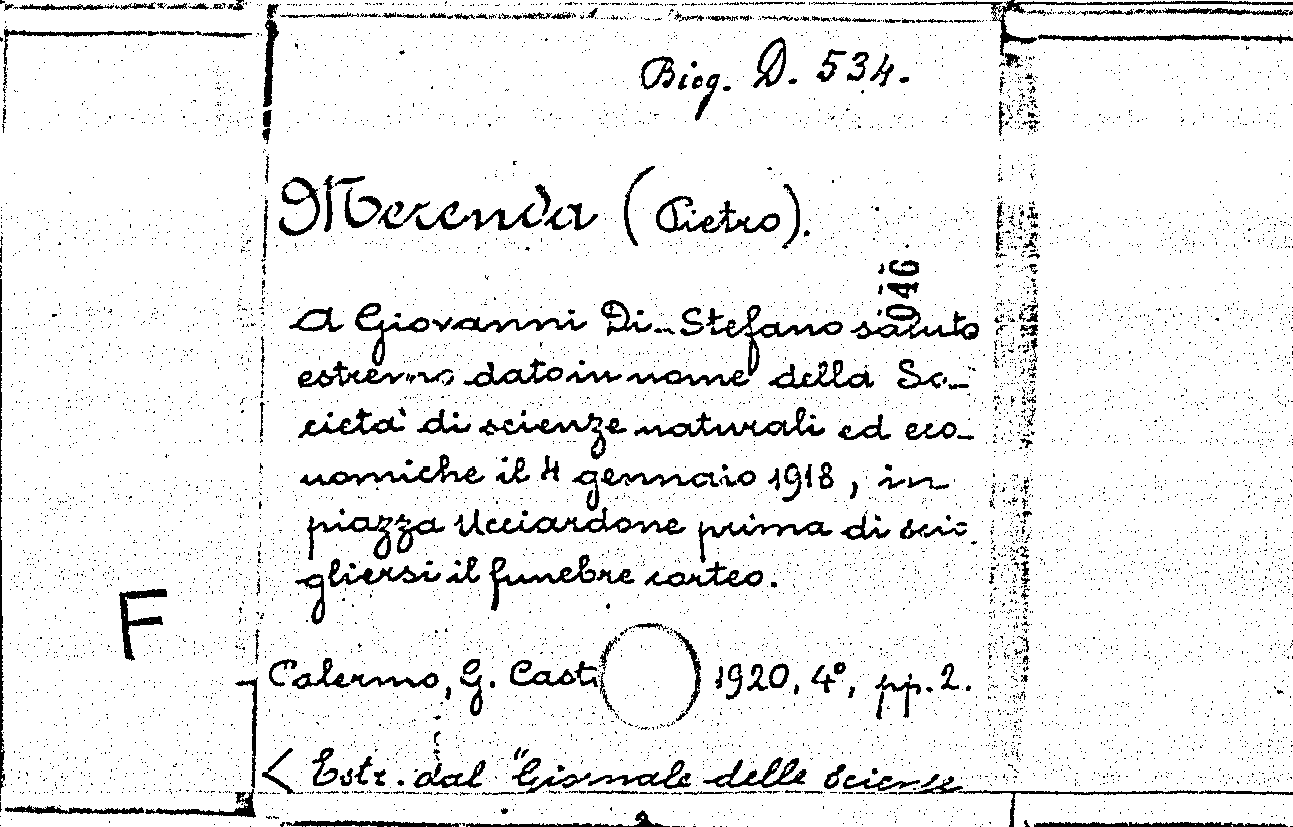 Biog. D. 534.
Merenda (Pietro).
046
A Giovanni Di-Stefano saluto
estremo dato in nome della So-
cietà di scienze naturali ed eco-
nomiche il 4 gennaio 1918, in
piazza Ucciardone prima di scio-
gliersi il funebre corteo.
F
Palermo, G. Cast 1920, 4°, pp. 2.
< Estr. dal "Giornale delle Scienze